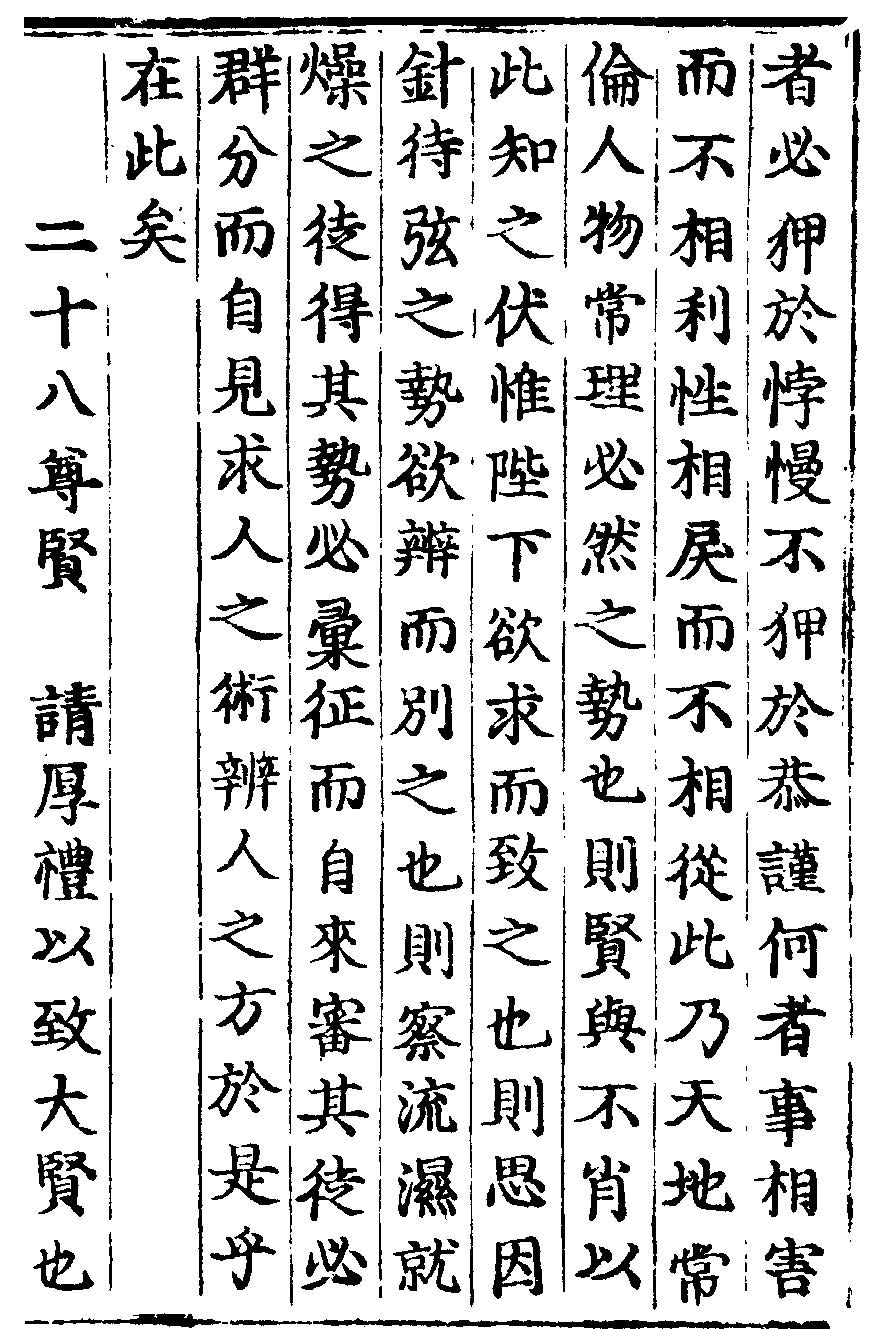 者必狎於悖慢不狎於恭謹何者事相害
而不相利性相戾而不相從此乃天地常
倫人物常理必然之勢也則賢與不肖以
此知之伏惟陛下欲求而致之也則思因
針待弦之勢欲辨而別之也則察流濕就
燥之徒得其勢必彙征而自來審其徒必
群分而自見求人之術辨人之方於是乎
在此矣
二十八尊賢　請厚禮以致大賢也